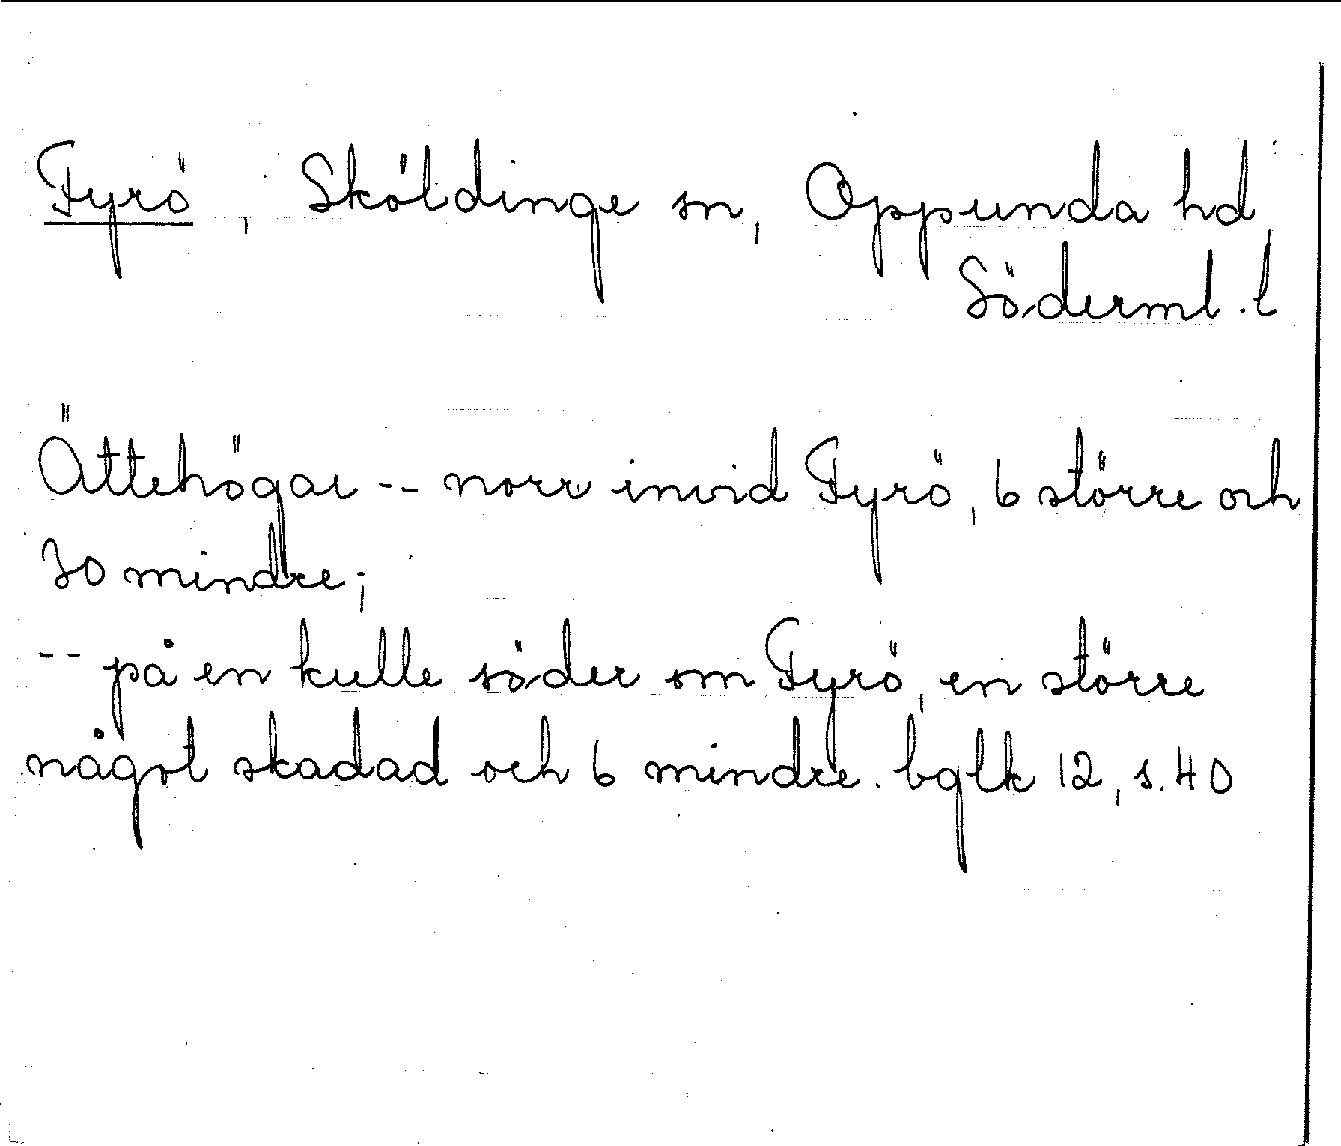 Fyrö, Sköldinge sn, Oppunda hd,
Söderml. l
Ättehögar -- norr invid Fyrö, 6 större och
30 mindre;
-- på en kulle söder om Fyrö, en större
något skadad och 6 mindre. bglk 12, s. 40